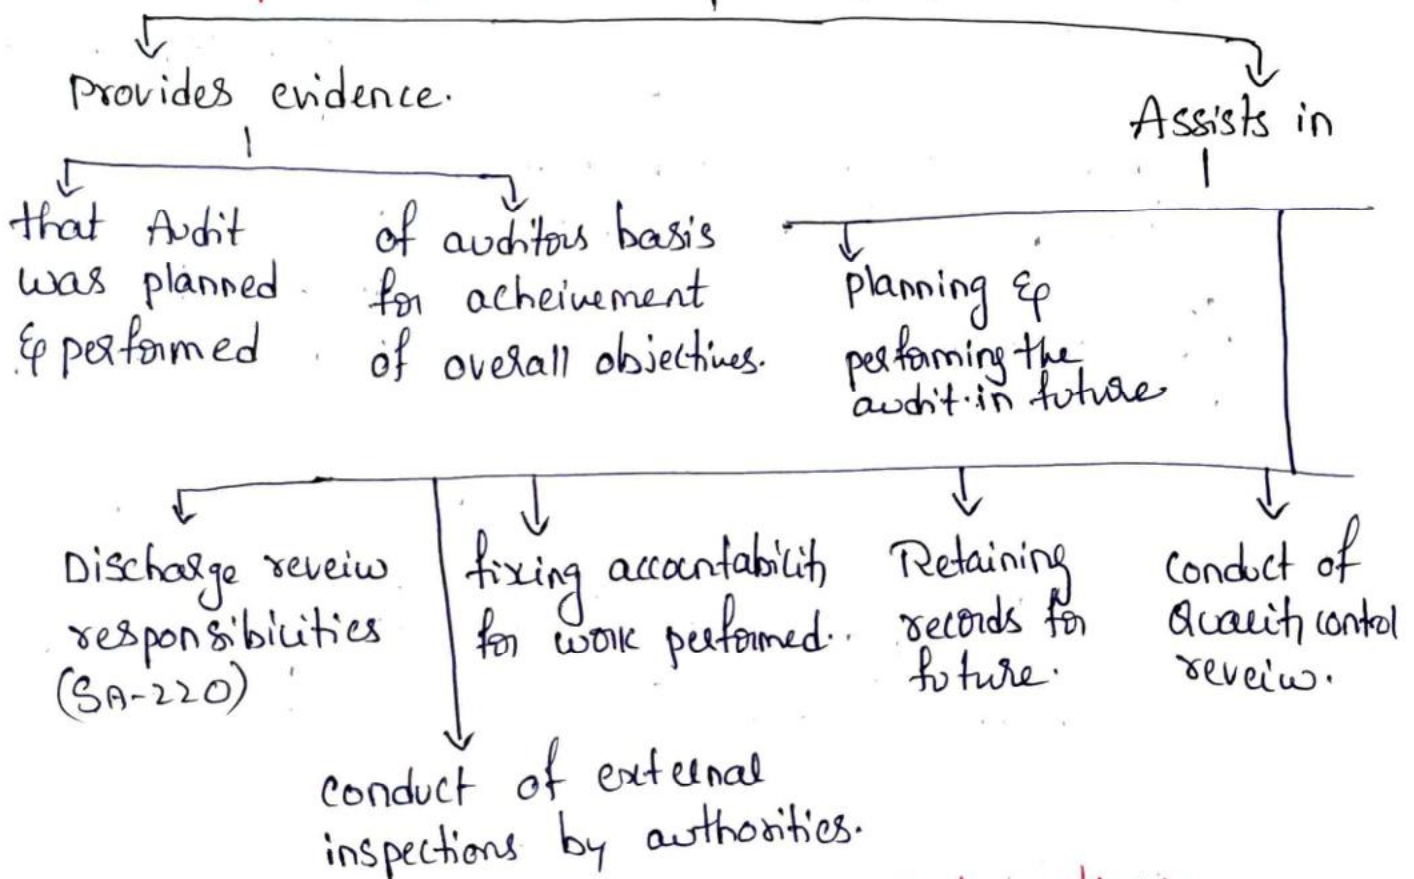 Provides evidence.
Assists in
that Audit
was planned
& performed
of auditors basis
for acheivement
of overall objectives.
planning &
performing the
audit in future
Discharge reveiw
responsibilities
(SA-220)
fixing accountability
for work performed.
Retaining
records for
future.
conduct of
Quality control
reveiw.
conduct of external
inspections by authorities.